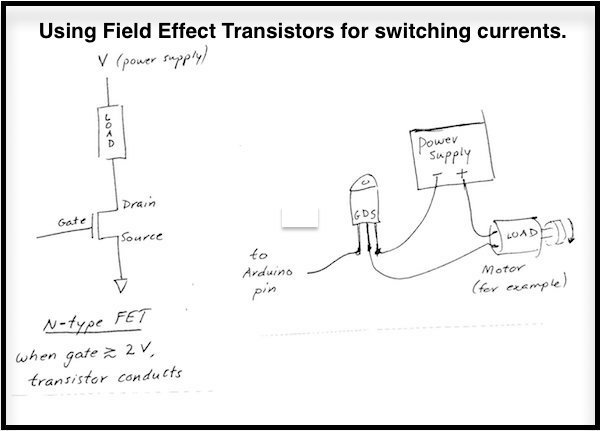 Using Field Effect Transistors for switching currents.
V (power supply)
LOAD
Drain
Gate
Source
N-type FET
when gate ≳ 2 V,
transistor conducts
Power
Supply
- +
GDS
LOAD
to
Arduino
pin
Motor
(for example)